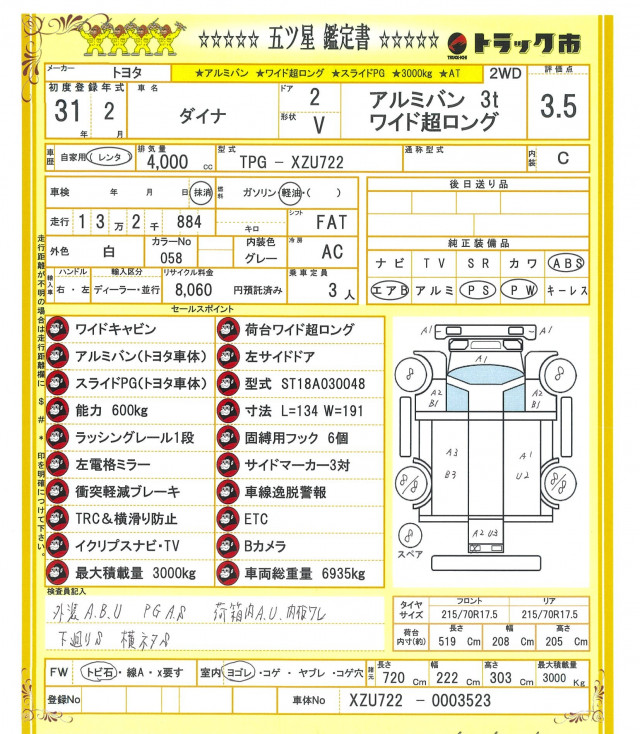 ☆☆☆☆☆ 五ツ星 鑑定書 ☆☆☆☆☆ トラック市
TRUCK-ICHI
メーカー トヨタ ★アルミバン ★ワイド超ロング ★スライドPG ★3000kg ★AT 2WD 評価点
初度登録年式 車名 ドア 2 アルミバン 3t 3.5
31年 2月 ダイナ 形状 V ワイド超ロング
車歴 自家用 レンタ 排気量 4,000 cc 型式 TPG - XZU722 通称型式 内装 C
車検 年 月 日 抹消 燃料 ガソリン・軽油・( ) 後日送り品
走行 13万2千884 キロ シフト FAT
純正装備品
外色 白 カラーNo 058 内装色 グレー 冷房 AC
ナビ TV SR カワ ABS
輸入車 ハンドル 右・左 輸入区分 ディーラー・並行 リサイクル料金 8,060 円預託済み 乗車定員 3人
エアB アルミ PS PW キーレス
走行距離が不明の場合は走行距離欄に $ # * 印を明確につけて下さい。
セールスポイント
ワイドキャビン 荷台ワイド超ロング
アルミバン(トヨタ車体) 左サイドドア
スライドPG(トヨタ車体) 型式 ST18A030048
能力 600kg 寸法 L=134 W=191
ラッシングレール1段 固縛用フック 6個
左電格ミラー サイドマーカー3対
衝突軽減ブレーキ 車線逸脱警報
TRC&横滑り防止 ETC
イクリプスナビ・TV Bカメラ
最大積載量 3000kg 車両総重量 6935kg
A1 A1
A1
8 8
A2 B1 A2 B1
A3 B3 A1 U2
8/8 8/8
A2 U3
8
スペア
検査員記入
外装 A.B.U PG A.S 荷箱内A.U.
下廻りS
タイヤサイズ フロント 215/70R17.5 リア 215/70R17.5
荷台内寸(約) 長さ 519 Cm 幅 208 Cm 高さ 205 Cm
FW トビ石・線A・×要す 室内 ヨゴレ・コゲ・ヤブレ・コゲ穴 諸元 長さ 720 Cm 幅 222 Cm 高さ 303 Cm 最大積載量 3000 Kg
登録No 車体No XZU722 - 0003523